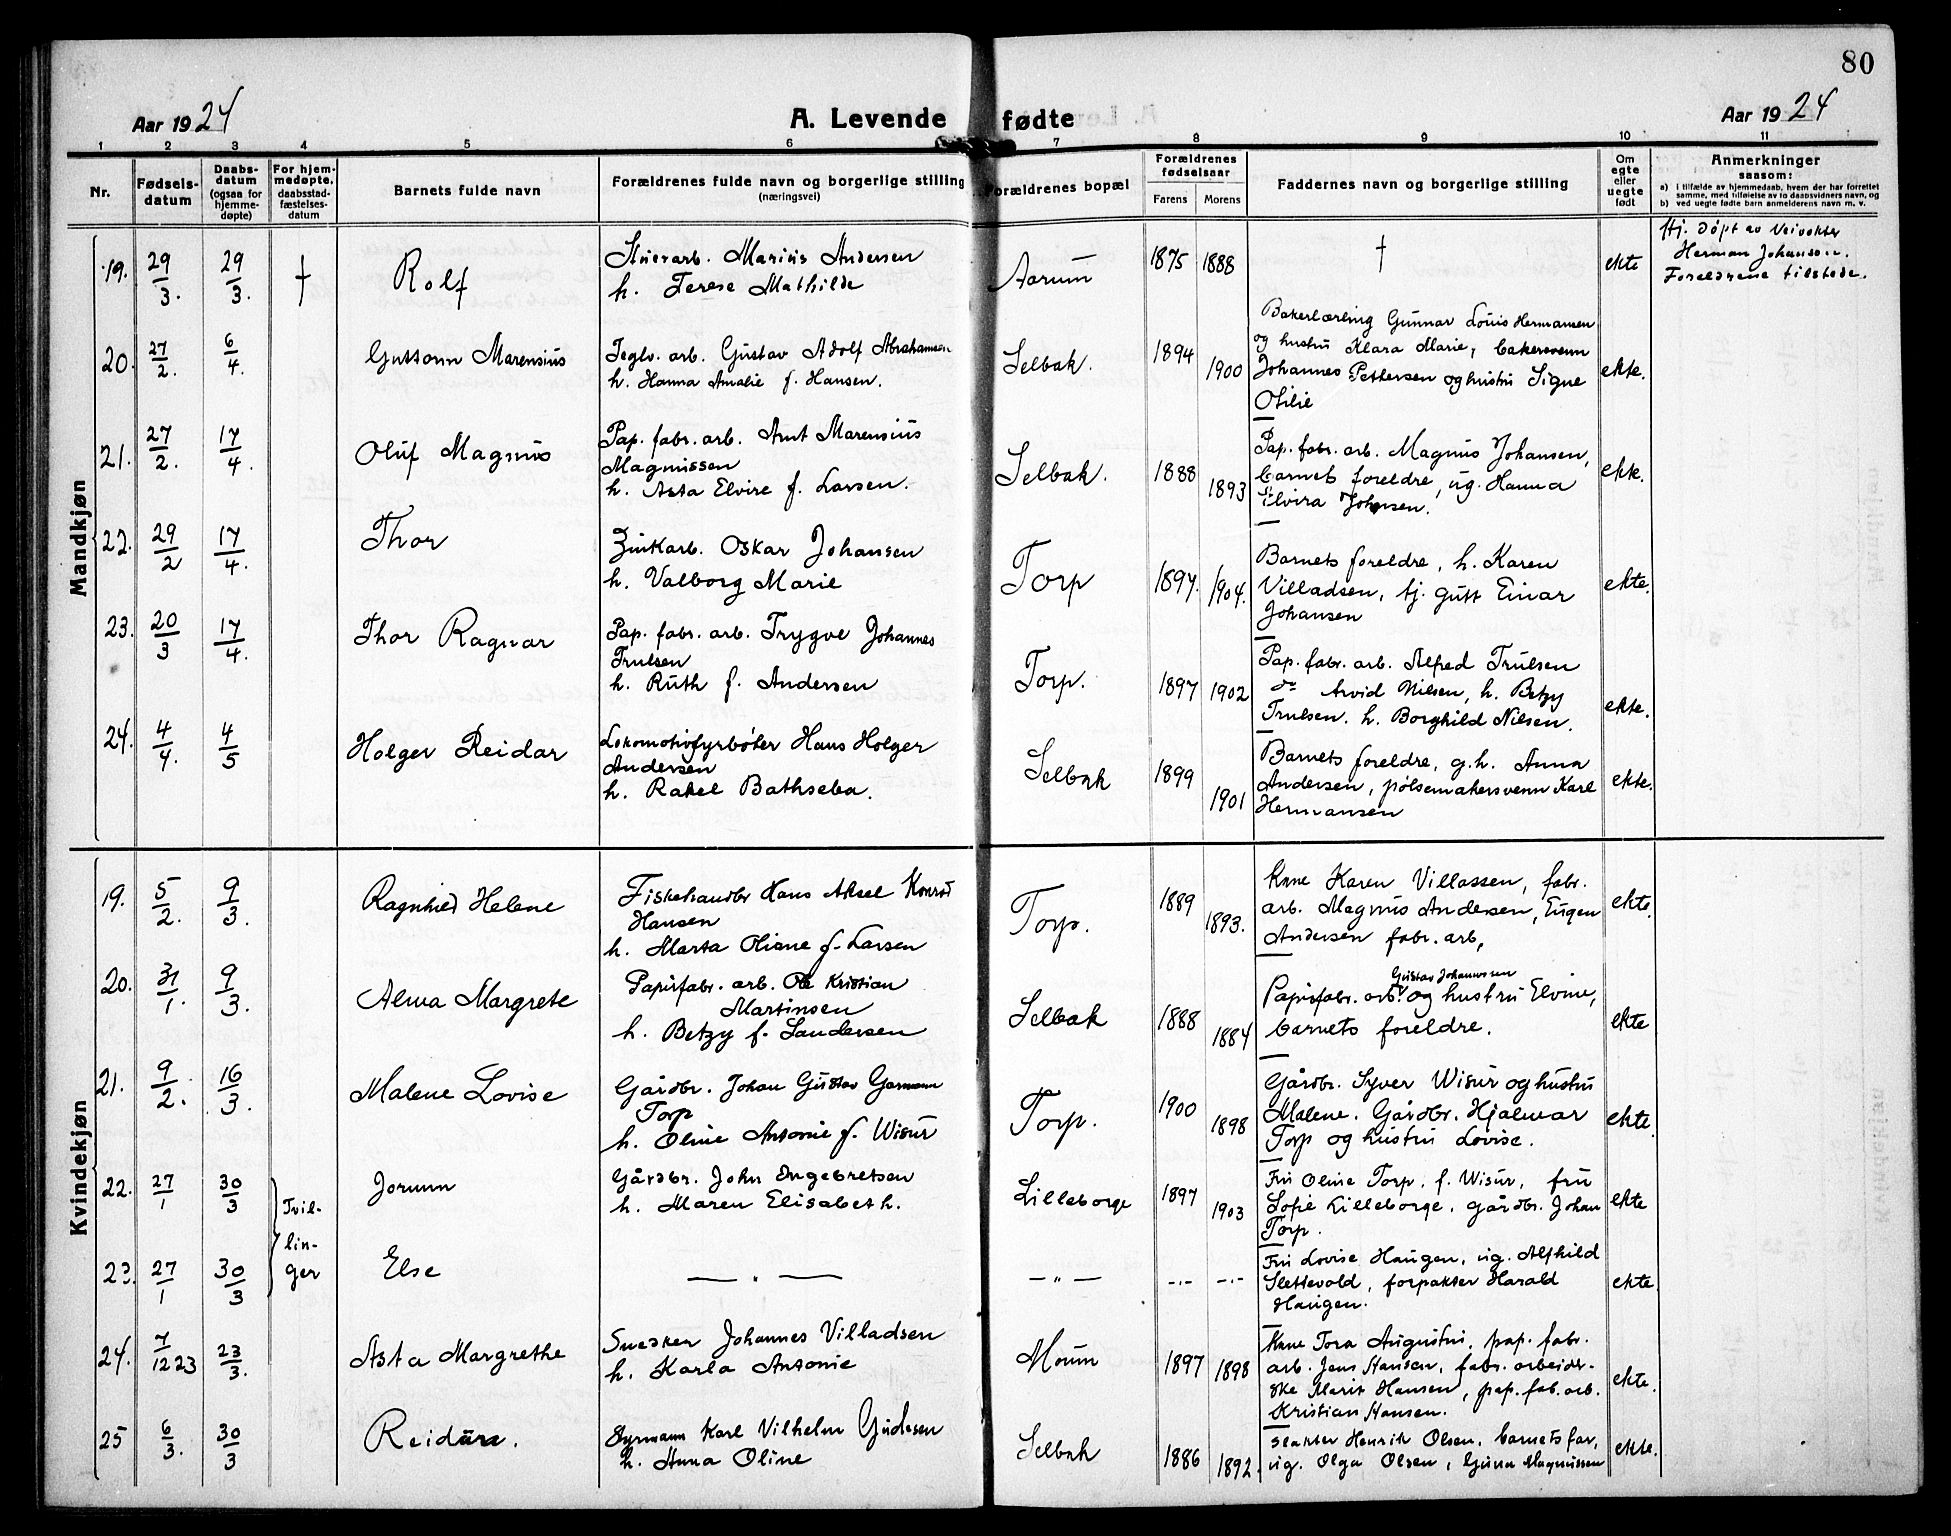 80
Aar 1924
A. Levende fødte
Aar 1924
1 2 3 4 5 6 7 8 9 10 11
Nr.
Fødsels-
datum
Daabs-
datum
(ogsaa for
hjemme-
døpte)
For hjem-
medøpte,
daabsstad-
fæstelses-
datum
Barnets fulde navn
Forældrenes fulde navn og borgerlige stilling
(næringsvei)
Forældrenes bopæl
Forældrenes
fødselsaar
Farens Morens
Faddernes navn og borgerlige stilling
Om
egte
eller
uegte
født
Anmerkninger
saasom:
a) i tilfælde av hjemmedaab, hvem der har forrettet
samme, med tilføielse av to daabsvidners navn, og
b) ved uegte fødte barn anmelderens navn m. v.
Mandkjøn
19. 29/3. 29/3. † Rolf
Stuerarb. Marius Andersen
h. Terese Mathilde
Aarum 1875 1888 † ekte
Hj. døpt av Veivokter
Herman Johansen.
Foreldrene tilstede.
20. 27/2. 6/4. Guttorm Marensius
Teglv. arb. Gustav Adolf Abrahamsen
h. Hanna Amalie f. Hansen.
Selbak. 1894 1900
Bakerlærling Gunnar Louis Hermansen
og hustru Klara Marie, bakersvenn
Johannes Pettersen og hustru Signe
Otilie
ekte.
21. 27/2. 17/4. Oluf Magnus
Pap. fabr. arb. Arnt Marensius
Magnussen
h. Asta Elvire f. Larsen.
Selbak. 1888 1893
Pap. fabr. arb. Magnus Johansen,
barnets foreldre, ug. Hanna
Elvira Johnsen.
ekte.
22. 29/2 17/4. Thor
Zinkarb. Oskar Johansen
h. Valborg Marie
Torp 1897. 1904.
Barnets foreldre, h. Karen
Villadsen, tj. gutt Einar
Johansen
ekte.
23. 20/3 17/4. Thor Ragnar
Pap. fabr. arb. Trygve Johannes
Trulsen
h. Ruth f. Andersen
Torp. 1897 1902
Pap. fabr. arb. Alfred Trulsen
do Arvid Nilsen, h. Betzy
Trulsen. h. Borghild Nilsen.
ekte.
24. 4/4. 4/5 Holger Reidar
Lokomotivfyrbøter Hans Holger
Andersen
h. Rakel Bathseba.
Selbak 1899 1901
Barnets foreldre, g.h. Anna
Andersen, pølsemakersvenn Karl
Hermansen
ekte.
Kvindekjøn
19. 5/2. 9/3. Ragnhild Helene
Fiskehandbr Hans Aksel Konrad
Hansen
h. Marta Oliane f. Larsen
Torp. 1889 1893.
Kone Karen Villassen, fabr.
arb. Magnus Andersen, Eugen
Andersen fabr. arb,
ekte.
20. 31/1. 9/3. Alma Margrete
Papirfabr. arb. Ole Kristian
Martinsen
h. Betzy f. Sandersen
Selbak 1888 1884
Gustav Johannssen
Papirfabr. arb. og hustru Elvine,
barnets foreldre.
ekte
21. 9/2. 16/3. Malene Lovise
Gårdbr. Johan Gustav Garmann
Torp
h. Oline Antonie f. Wisur
Torp. 1900 1898
Gårdbr. Syver Wisur og hustru
Malene. Gårdbr. Hjalmar
Torp og hustru Lovise.
ekte.
22. 27/1 30/3 Tvil- Jorunn
Gårdbr. John Engebretsen
h. Maren Elisabeth.
Lilleborge 1897 1903
Fru Oline Torp. f. Wisur, fru
Sofie Lilleborge, gårdbr. Johan
Torp.
ekte
lin-
23. 27/1 30/3 ger Else
— " — — " — -"- -"-
Fru Lovise Haugen, ug. Alfhild
Slettevold, forpakter Harald
Haugen.
ekte.
24. 7/12 23 23/3. Asta Margrethe
Snedker Johannes Villadsen
h. Karla Antonie
Moum 1897 1898
Kone Tora Augustus, pap. fabr.
arb. Jens Hansen, fabr. arbeider-
ske Marit Hansen, pap. fab. arb.
Kristian Hansen.
ekte.
25 6/3. 30/3 Reidura.
Syrmann Karl Vilhelm Gudesen
h. Anna Oline
Selbak 1886 1892.
Slakter Henrik Olsen, barnets far,
ug. Olga Olsen, Guna Magnussen
ekte.